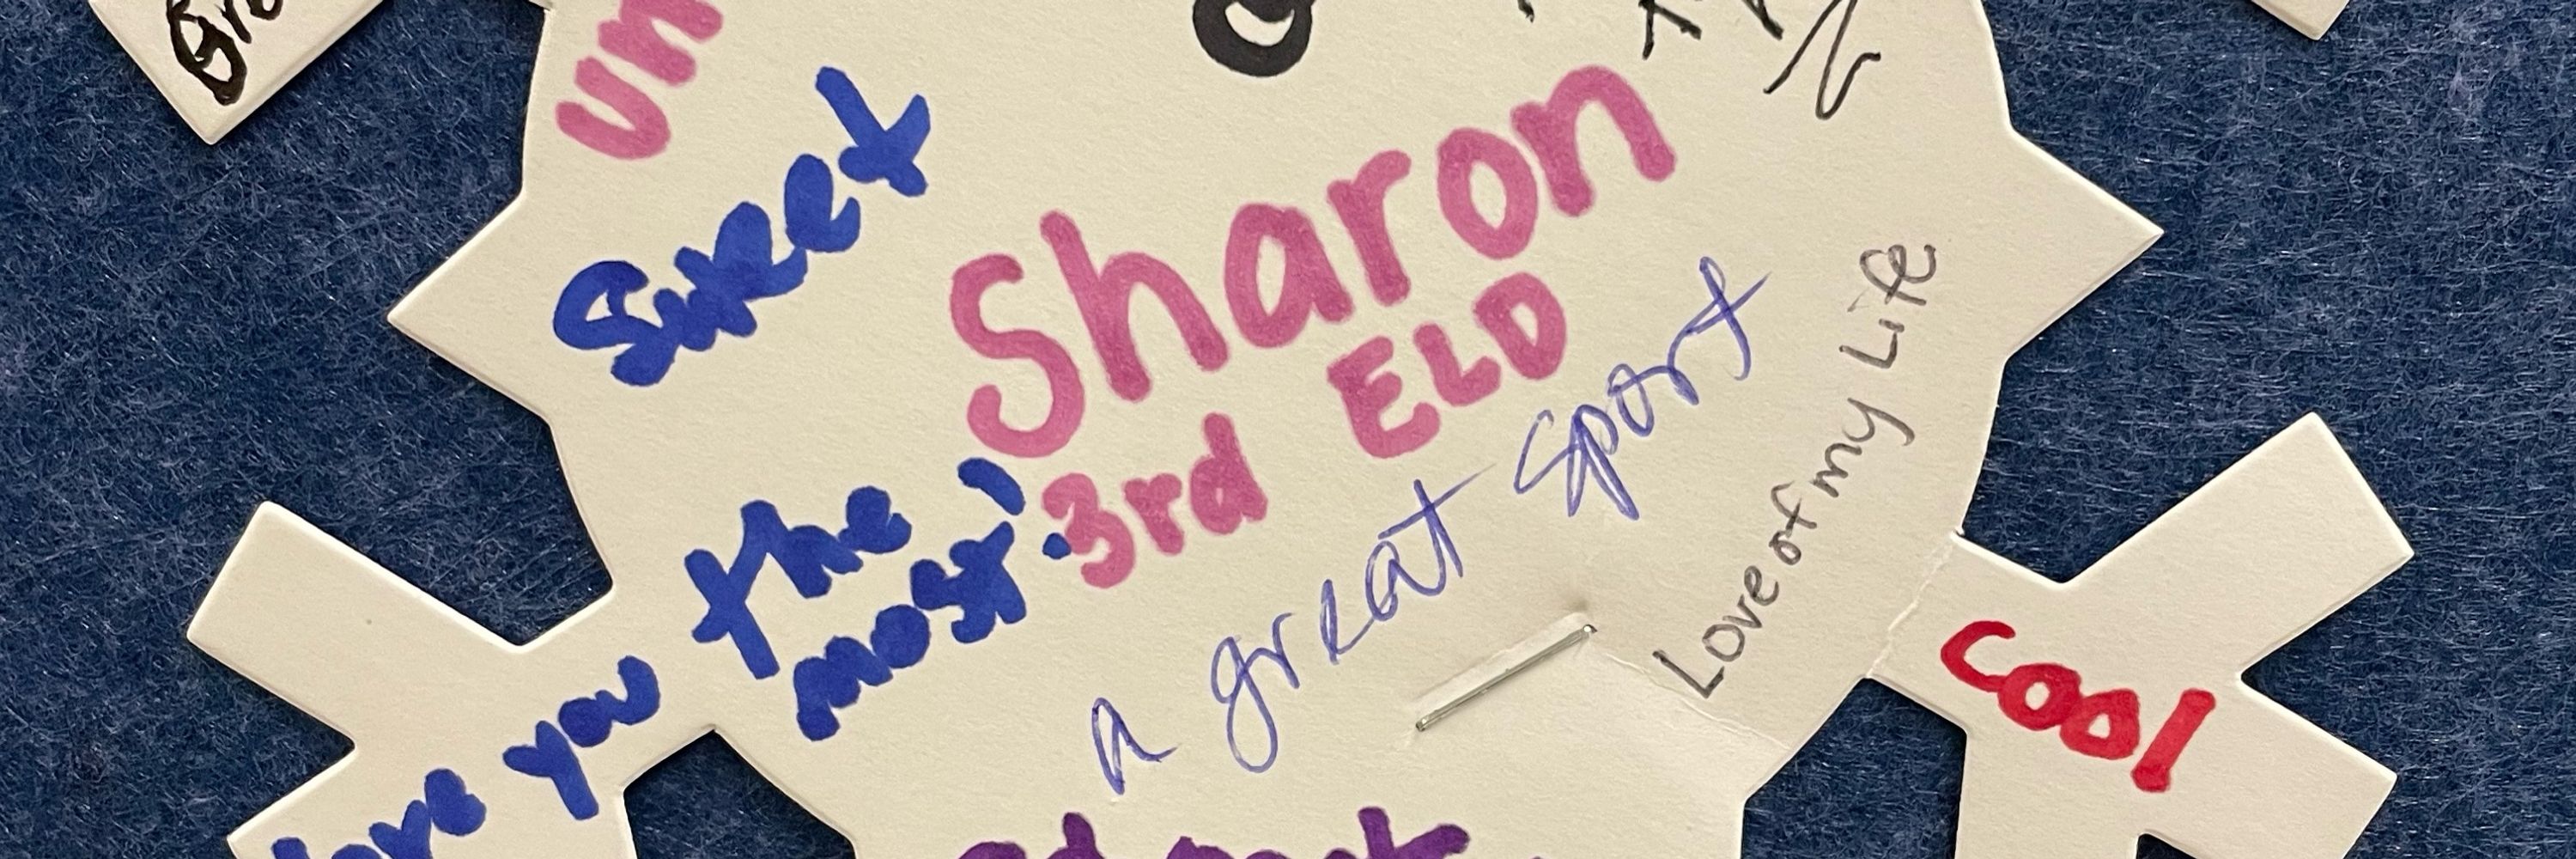 Sweet
Sharon
3rd ELD
love you the
most!
a great sport
Love of my Life
cool